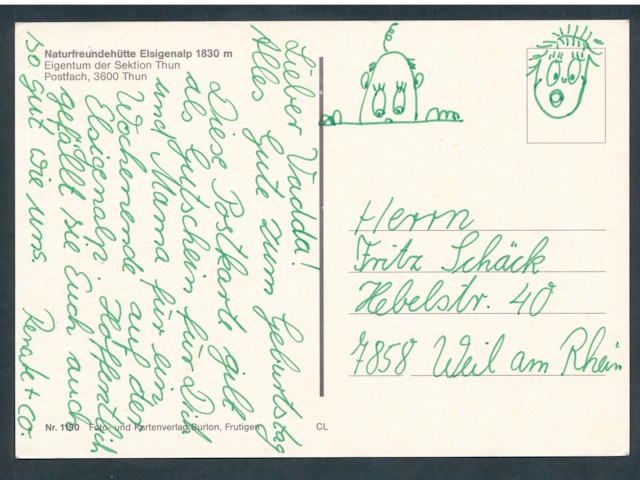 Naturfreundehütte Elsigenalp 1830 m
Eigentum der Sektion Thun
Postfach, 3600 Thun
Lieber Vadda!
Alles Gute zum Geburtstag
Diese Postkarte gilt
als Gutschein für Dich
und Mama für ein
Wochenende auf der
Elsigenalp. Hoffentlich
gefällt sie Euch auch
so gut wie uns.
Renate + Co.
Herrn
Fritz Schäck
Hebelstr. 40
7858 Weil am Rhein
Nr. 1190 Foto- und Kartenverlag Burlon, Frutigen
CL